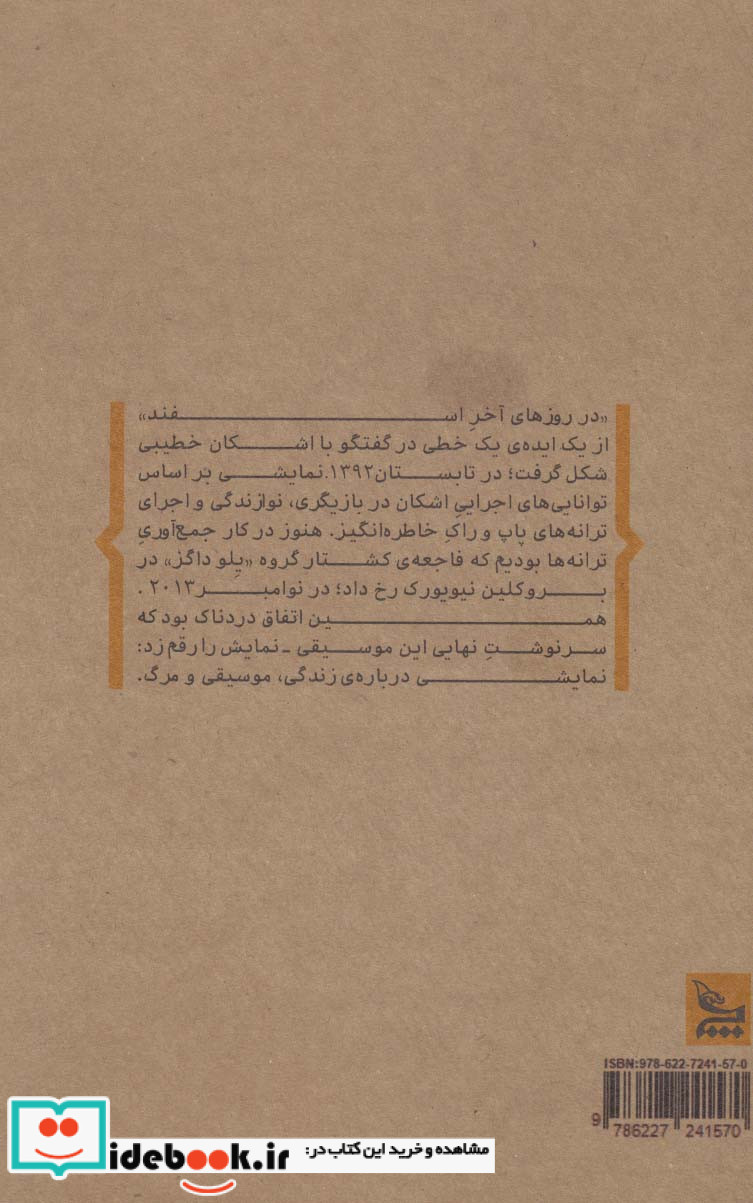 «در روزهای آخرِ اسفند»
از یک ایده‌ی یک خطی در گفتگو با اشکان خطیبی
شکل گرفت؛ در تابستان ۱۳۹۲. نمایشی بر اساس
توانایی‌های اجراییِ اشکان در بازیگری، نوازندگی و اجرای
ترانه‌های پاپ و راکِ خاطره‌انگیز. هنوز در کار جمع‌آوریِ
ترانه‌ها بودیم که فاجعه‌ی کشتار گروه «یِلو داگز» در
بروکلین نیویورک رخ داد؛ در نوامبر ۲۰۱۳ .
همین اتفاق دردناک بود که
سرنوشتِ نهایی این موسیقی ـ نمایش را رقم زد:
نمایشی درباره‌ی زندگی، موسیقی و مرگ.
ISBN:978-622-7241-57-0
9 786227 241570
مشاهده و خرید این کتاب در:
idebook.ir